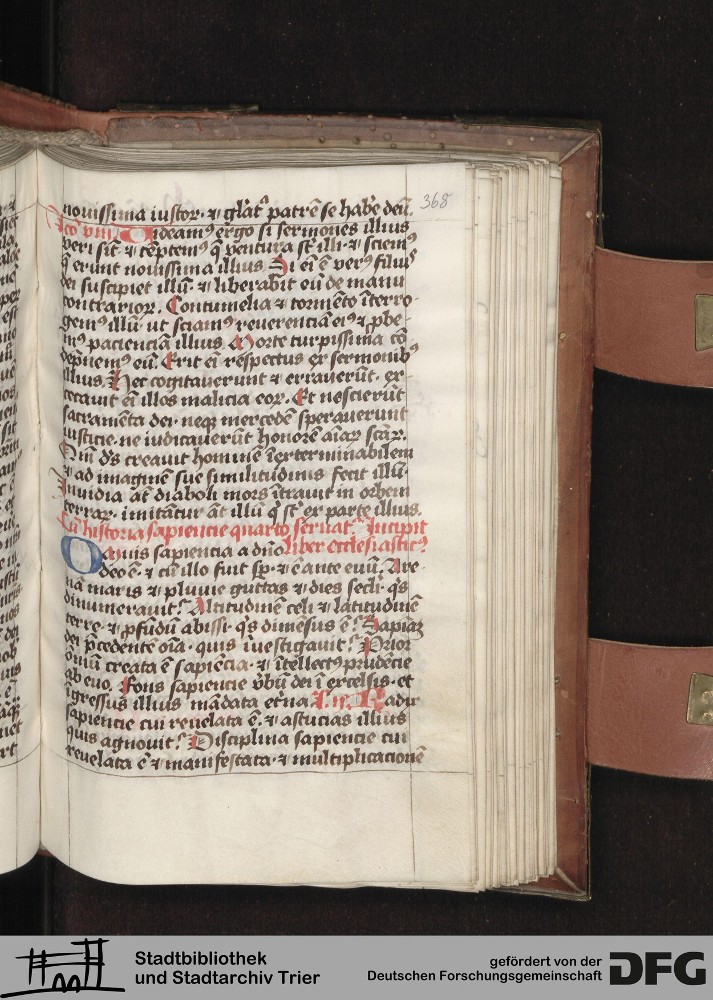 nouissima iustoꝝ · ⁊ gl'at᷑ patrē se hab'e deū.
368
Lco̅ viii. Uideamꝰ ergo si sermones illius
veri sīt · ⁊ tēptemꝰ q̄ ventura st̄ illi · ⁊ sciemꝰ
q̄ erunt nouissima illius Si eī ē verꝰ filiꝰ
dei suscipiet illū · ⁊ liberabit eū de manu
contrarioꝝ. Contumelia ⁊ tormēto īterro-
gemꝰ illū ut sciamꝰ reuerenciā eiꝰ ⁊ ꝓbe-
mꝰ pacienciā illius Morte turpissima cō
dēpnemꝰ eū. Erit eī respectus ex sermonibꝰ
illius. Hec cogitauerunt ⁊ errauerūt · ex-
cecauit eī illos malicia eoꝝ. Et nescierūt
sacramēta dei · neqꝫ mercedē sperauerunt
iusticie · ne iudicauerūt honorē aīaꝝ scāꝝ.
Qm̄ ds̄ creauit hominē īexterminabilem
⁊ ad imaginē sue similitudinis fecit illū ·
Inuidia āt diaboli mors ītrauit in orbem
terraꝝ · imitātur āt illū q̄ st̄ ex parte illius.
Cū historia sapiencie quarto seruat᷑. Incipit
Omnis sapiencia a dn̄o liber ecclesiasticꝰ
deo ē · ⁊ cū illo fuit sp̄ · ⁊ ē ante euū. Are-
nā maris ⁊ pluuie guttas ⁊ dies secl'i · q̄s
dinumerauit? Altitudinē celi ⁊ latitudinē
terre · ⁊ ꝓfūdū abissi · q̄s dimēsus ē? Sapiāꝫ
dei p̄cedentē oīa · quis īuestigauit? Prior
om̄iū creata ē sapiēcia · ⁊ ītellectꝰ prudēcie
ab euo. Fons sapiencie v̄bū dei ī excelsis · et
īgressus illius mādata et'na. L. ii. Radix
sapiencie cui reuelata ē · ⁊ astucias illius
quis agnouit? Disciplina sapiencie cui
reuelata ē ⁊ manifestata · ⁊ multiplicacionē
Stadtbibliothek
und Stadtarchiv Trier
gefördert von der
Deutschen Forschungsgemeinschaft
DFG